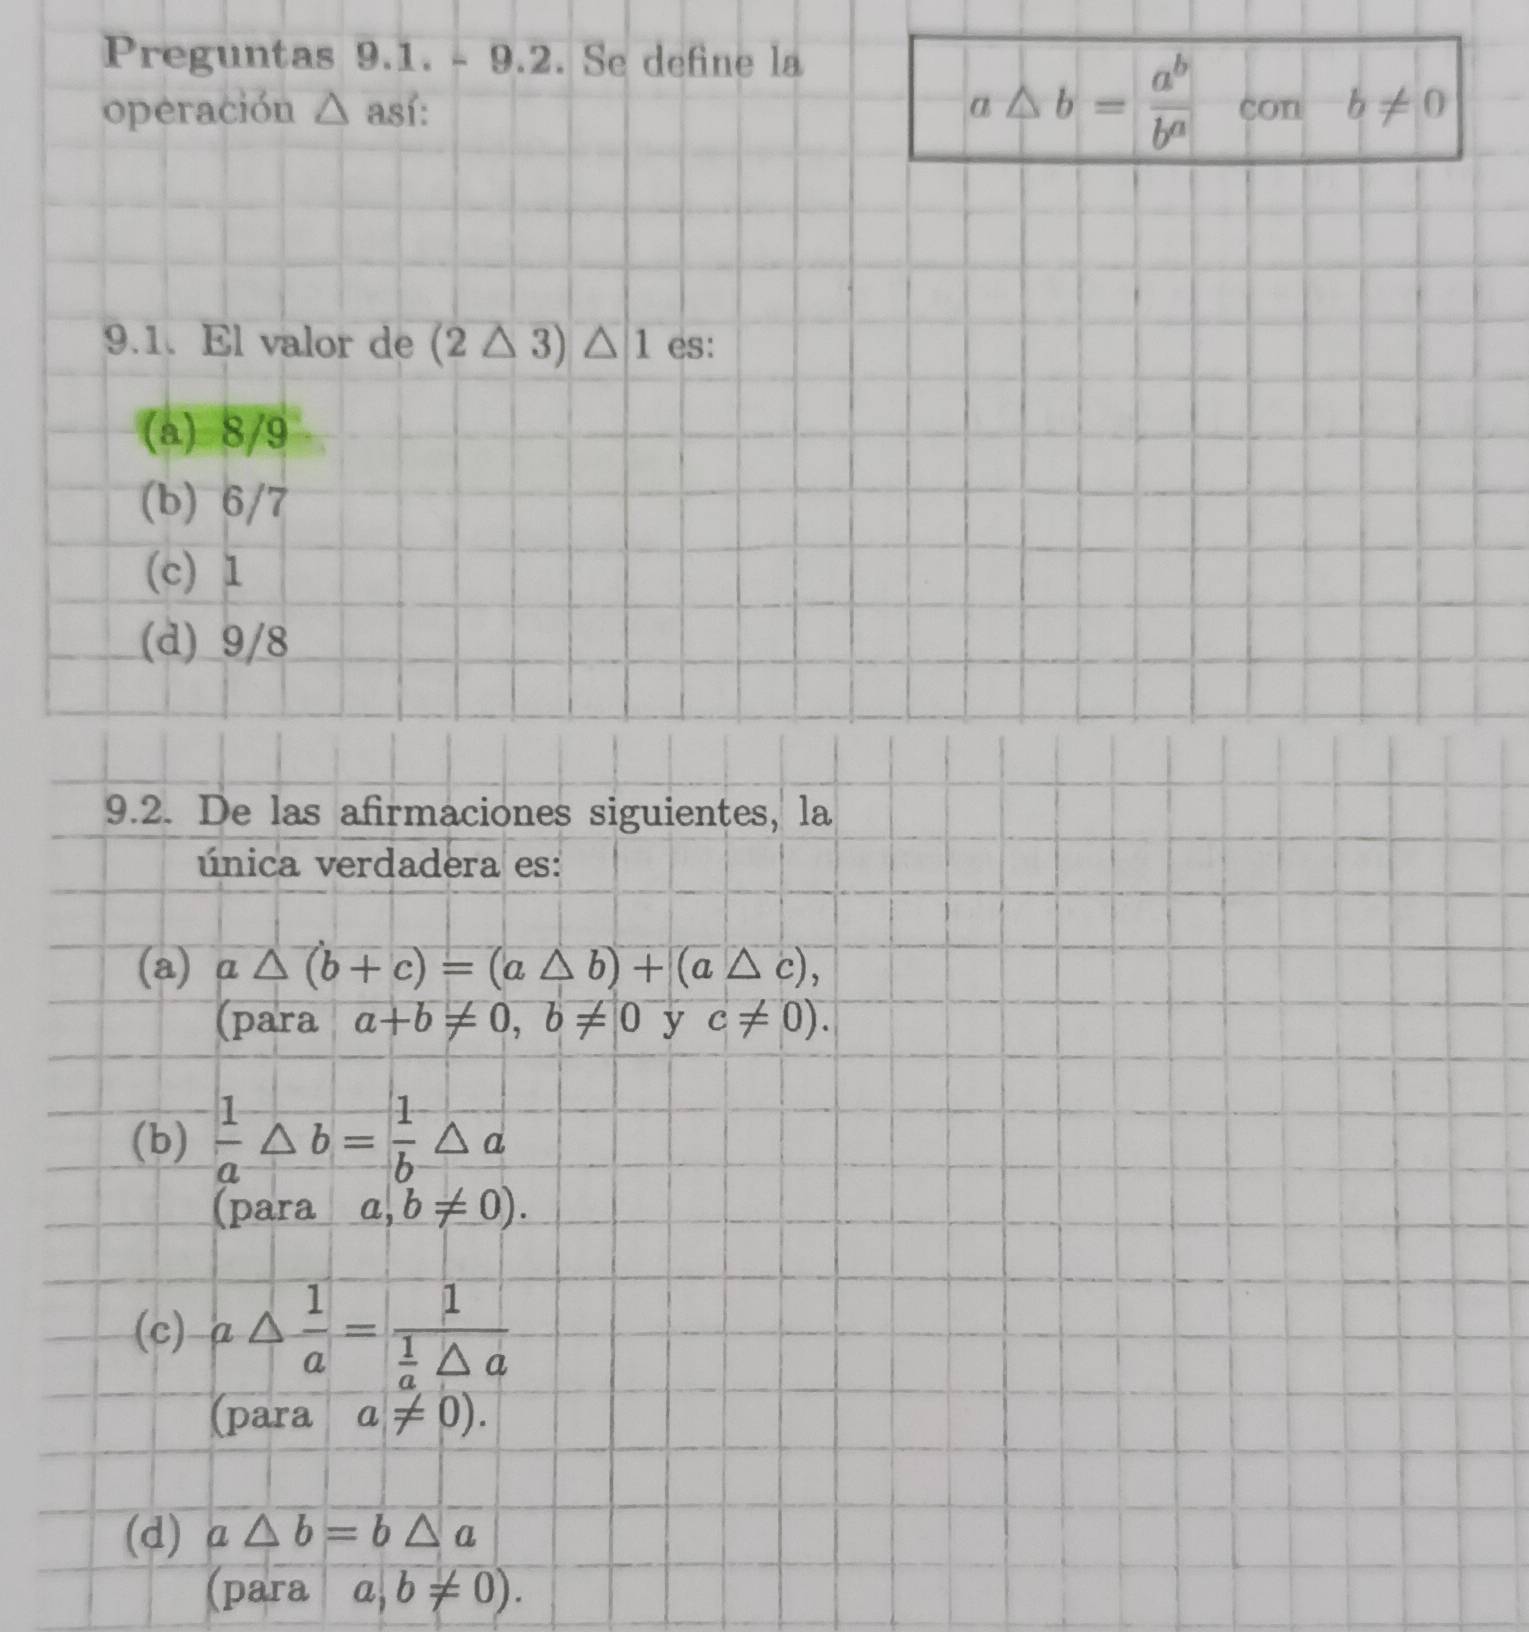 Preguntas 9.1. - 9.2. Se define la
operación △ así:
a △ b = a^b / b^a con b ≠ 0
9.1. El valor de (2 △ 3) △ 1 es:
(a) 8/9
(b) 6/7
(c) 1
(d) 9/8
9.2. De las afirmaciones siguientes, la
única verdadera es:
(a) a △ (b + c) = (a △ b) + (a △ c),
(para a+b ≠ 0, b ≠ 0 y c ≠ 0).
(b) 1/a △ b = 1/b △ a
(para a, b ≠ 0).
(c) a △ 1/a = 1 / (1/a △ a)
(para a ≠ 0).
(d) a △ b = b △ a
(para a, b ≠ 0).